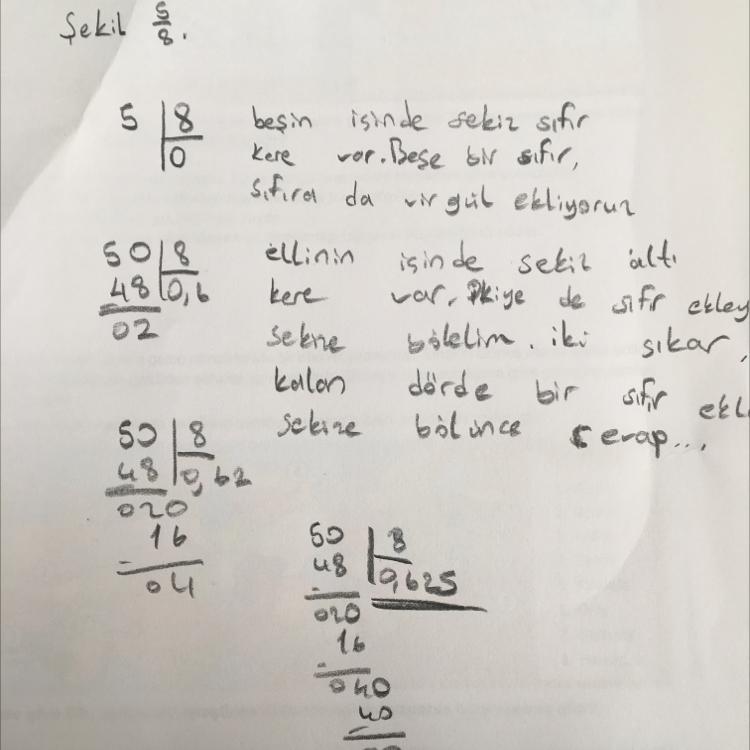 Şekil 5/8.
5 | 8 beşin içinde sekiz sıfır
0 kere var. Beşe bir sıfır,
sıfıra da virgül ekliyoruz
50 | 8 ellinin içinde sekiz altı
48 | 0,6 kere var. İkiye de sıfır ekley
02 sekize bölelim. iki çıkar,
kalan dörde bir sıfır ekl
50 | 8 sekize bölünce cevap...,
48 | 0,62
020
16
04
50 | 8
48 | 0,625
020
16
040
40